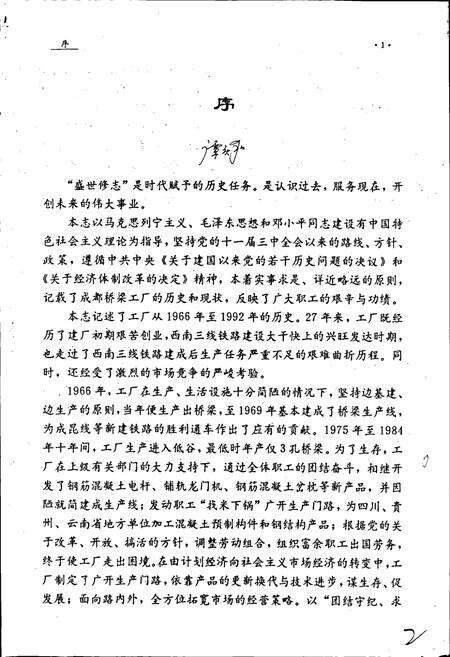 序
·1·
序
“盛世修志”是时代赋予的历史任务。是认识过去，服务现在，开
创未来的伟大事业。
本志以马克思列宁主义、毛泽东思想和邓小平同志建设有中国特
色社会主义理论为指导，坚持党的十一届三中全会以来的路线、方针、
政策，遵循中共中央《关于建国以来党的若干历史问题的决议》和
《关于经济体制改革的决定》精神，本着实事求是、详近略远的原则，
记载了成都桥梁工厂的历史和现状，反映了广大职工的艰辛与功绩。
本志记述了工厂从1966年至1992年的历史。27年来，工厂既经
历了建厂初期艰苦创业，西南三线铁路建设大干快上的兴旺发达时期，
也走过了西南三线铁路建成后生产任务严重不足的艰难曲折历程。同
时，还经受了激烈的市场竞争的严峻考验。
1966年，工厂在生产、生活设施十分简陋的情况下，坚持边基建、
边生产的原则，当年便生产出桥梁，至1969年基本建成了桥梁生产线，
为成昆线等新建铁路的胜利通车作出了应有的贡献。1975年至1984
年十年间，工厂生产进入低谷，最低时年产仅3孔桥梁。为了生存，工
厂在上级有关部门的大力支持下，通过全体职工的团结奋斗，相继开
发了钢筋混凝土电杆、铺轨龙门机、钢筋混凝土岔枕等新产品，并因
陋就简建成生产线；发动职工“找米下锅”广开生产门路，为四川、贵
州、云南省地方单位加工混凝土预制构件和钢结构产品；根据党的关
于改革、开放、搞活的方针，调整劳动组合，组织富余职工出国劳务，
终于使工厂走出困境。在由计划经济向社会主义市场经济的转变中，工
厂制定了广开生产门路，依靠产品的更新换代与技术进步，谋生存、促
发展；面向路内外，全方位拓宽市场的经营策略。以“团结守纪、求
2